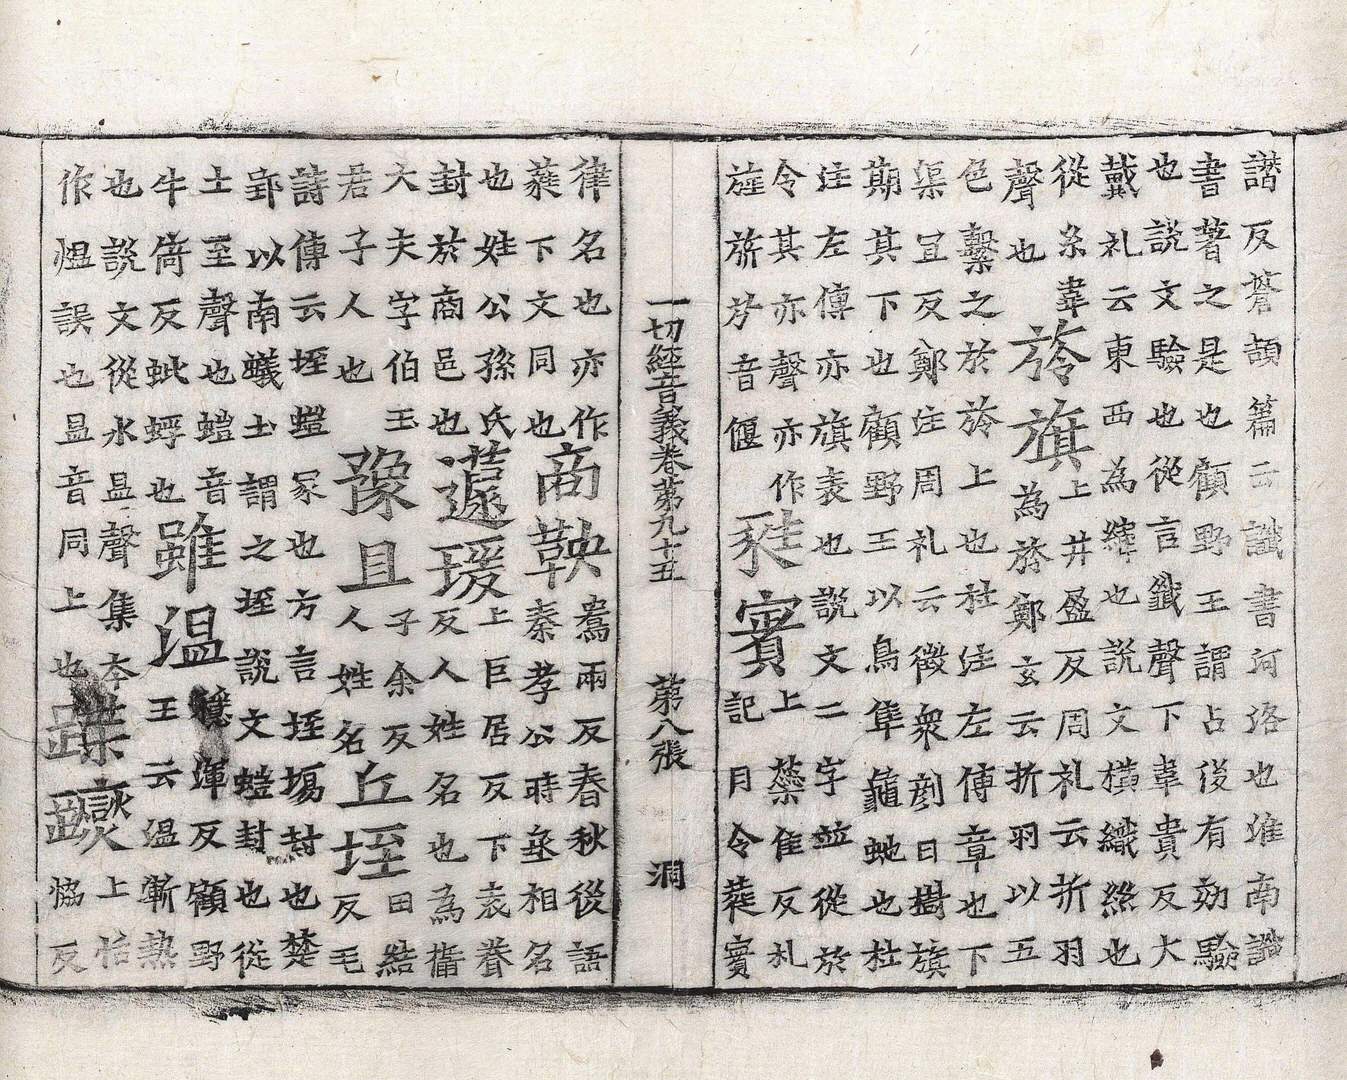 譛反蒼頡篇云讖書河洛也淮南讖
書著之是也顧野王謂占後有効驗
也說文驗也從言韱聲下韋貴反大
戴礼云東西為緯也說文橫織絲也
從糸韋
聲也
旍旗
上井盈反周礼云折羽
為旍鄭玄云折羽以五
色繫之於旍上也杜注左傳章也下
渠冝反鄭注周礼云徵衆刻日樹旗
期其下也顧野王以鳥隼龜虵也杜
注左傳亦旗表也說文二字並從㫃
令其亦聲亦作
旌旂㫃音偃
蕤賓
上蘂隹反礼
記月令蕤賓
律名也亦作
蕤下文同也
商鞅
鴦兩反春秋後語
秦孝公時丞相名
也姓公孫氏
封於商邑也
蘧瑗
上巨居反下袁眷
反人姓名也為衞
大夫字伯玉
君子人也
豫且
子余反
人姓名
丘垤
田結
反毛
詩傳云垤螘冢也方言垤塲封也楚
郢以南蟻土謂之垤說文螘封也從
土至聲也螘音
牛倚反蚍蜉也
雖溫
穩渾反顧野
王云溫漸熱
也說文從水昷聲集夲
作熅誤也昷音同上也
蹀躞
上恬
協反
一切經音義卷第九十五 第八張 洞